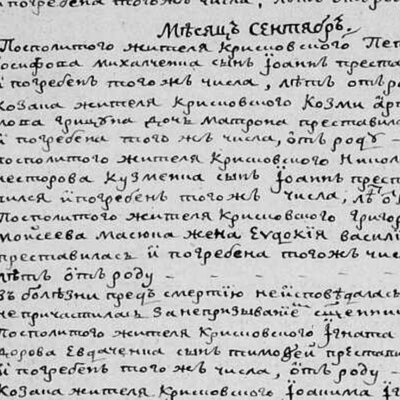 и погребена того жъ числа, лѣтъ отъ роду
Мѣсяцъ Сентябрь.
Посполитого жителя Крисковского Пет
осифова Михалченка сынъ Іоаннъ преста
и погребенъ того жъ числа, лѣтъ отъ ро
козака жителя Крисковского Козми Арт
мова Грицуна дочь Матрона преставила
и погребена того жъ числа, отъ роду –
посполитого жителя Крисковского Никол
несторова Кузменка сынъ Іоаннъ прест
вился и погребенъ того жъ числа, лѣтъ о
Посполитого жителя Крисковского Григор
Моисеева Масюка жена Евдокія Васили
преставилась и погребена того жъ чис
лѣтъ отъ роду – – – – –
въ болезни предъ смертію неисповѣдалась
непричастилась за непризываніе сщенни
Посполитого жителя Крисковского Ігната
дорова Евдаченка сынъ Тимоѳей преста
и погребенъ того жъ числа, отъ роду –
Козака жителя Крисковского Іоакима Іг